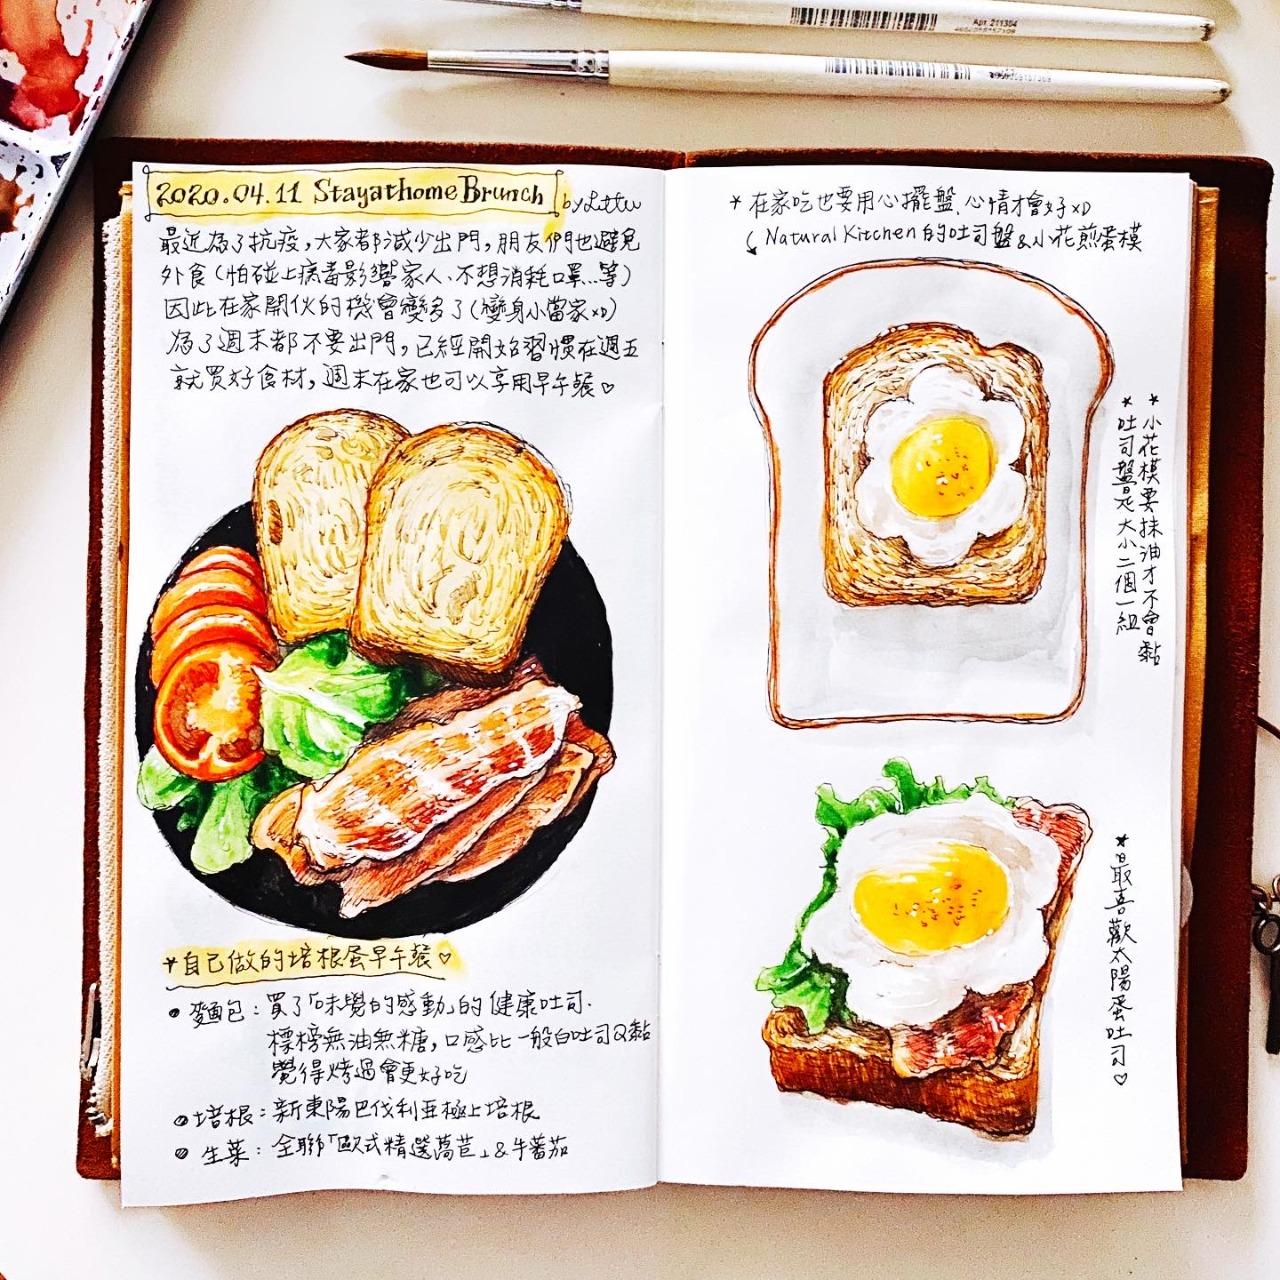 Арт. 211304
2020.04.11 StayathomeBrunch
最近為了抗疫，大家都減少出門，朋友們也避免
外食（怕碰上病毒影響家人、不想消耗口罩...等）
因此在家開伙的機會變多了（變身小當家xD）
為了週末都不要出門，已經開始習慣在週五
就買好食材，週末在家也可以享用早午餐♡
*自己做的培根蛋早午餐♡
• 麵包：買了「味覺的感動」的健康吐司.
標榜無油無糖，口感比一般白吐司Q黏
覺得烤過會更好吃
• 培根：新東陽巴伐利亞極上培根
• 生菜：全聯「歐式精選萵苣」&牛蕃茄
*在家吃也要用心擺盤、心情才會好xD
Natural Kitchen的吐司盤&小花煎蛋模
*小花模要抹油才不會黏
*吐司盤是大小二個一組
*最喜歡太陽蛋吐司♡